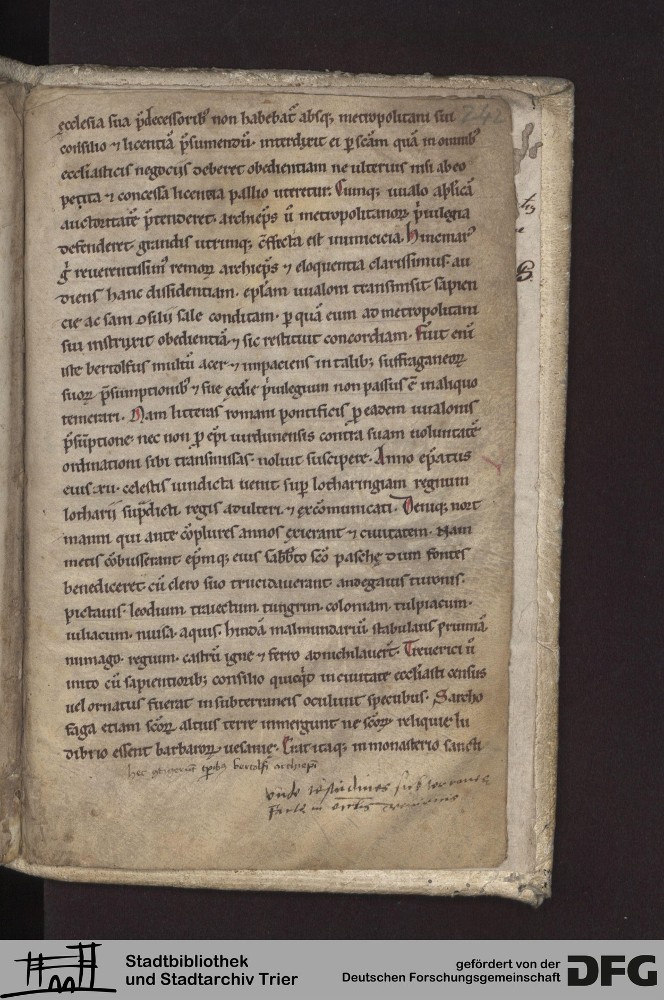 242
ecclesia sua p̄decessorib' non habebat̄ absq; metropolitani sui
consilio ⁊ licentiā p̄sumendū. interdixit ei p̱ scām quā in omnib'
eccliasticis negociis deberet obedientiam ne ulterius nisi ab eo
petita ⁊ concessa licentia pallio uteretur. Cumq; uualo ap̄licā
auctoritatē p̄tenderet. archiep̄s ū metropolitanoꝝ p̄uilegia
defenderet. grandis utrimq; effecta est inimicicia. Hincmar'
g̊ reuerentissim' remoꝝ archiep̄s ⁊ eloquentia clarissimus. au
diens hanc dissidentiam. ep̄lam uualoni transmisit sapien
cie ac sani ɔsilii sale conditam. p̱ quā eum ad metropolitani
sui instruxit obedientiā. ⁊ sic restituit concordiam. Fuit eni
iste bertolfus multū acer ⁊ impaciens in talib; suffraganeoꝝ
suoꝝ p̄sumptionib' ⁊ sue ecclie p̄uilegium non passus ē in aliquo
temerari. Nam litteras romani pontificis p̱ eadem uualonis
p̄sūptione. nec non p̱ ep̄i uirdunensis contra suam uoluntatē
ordinationi sibi transmissas. noluit suscipere. Anno ep̄atus
eius .xii. celestis uindicta uenit sup̱ lotharingiam regnum
lotharii sup̄dicti regis adulteri. ⁊ excōmunicati. Deniq; nort
manni qui ante cōplures annos exierant ⁊ ciuitatem. Nam
metis cōbusserant ep̄mq; eius sabb̄to scō pasche dum fontes
benediceret cū clero suo trucidauerant. andegauis turonis.
pictauis. leodium. traiectum. tungrim. coloniam. tulpiacum.
iuliacum. niusa. aquis. Hindā malmundariū. stabulaus prumiā
numago. regium. castrū igne ⁊ ferro adnichilauert̄. Treuerici ū
inito cū sapientiorib; consilio quicq̇d in ciuitate eccliasti census
uel ornatus fuerat in subterraneis oculunt specubus. Sarcho
faga etiam scōꝝ altius terre inmergunt ne scōꝝ reliquie lu
dibrio essent barbaroꝝ uesanie. Erat itaq; in monasterio sancti
hec gesta tp̄ib; bertolfi archiepi
unde testudines subterranee
facte in
Stadtbibliothek
und Stadtarchiv Trier
gefördert von der
Deutschen Forschungsgemeinschaft
DFG